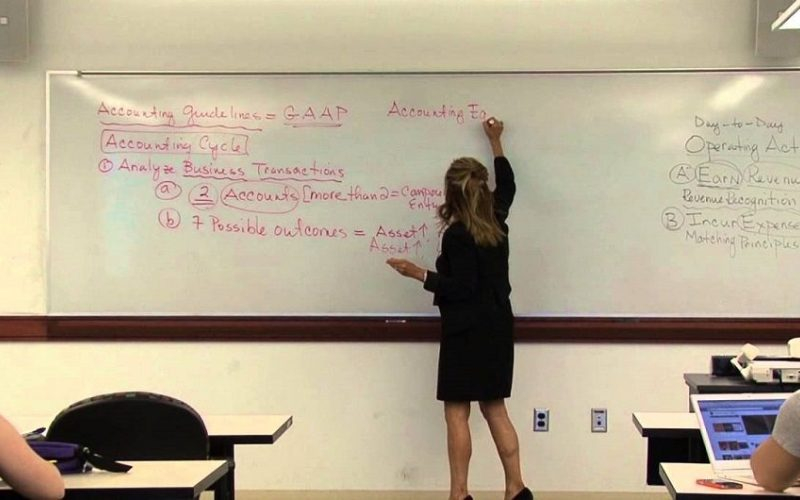 Accounting guidelines = GAAP
Accounting Cycle
① Analyze Business Transactions
ⓐ 2 Accounts [more than 2 =
Entry
ⓑ 7 Possible outcomes = Asset↑
Asset↑
Accounting Eq
Day-to-Day
Operating Act
Ⓐ Earn Revenu
Revenue Recognition
Ⓑ Incur Expense
Matching Principles